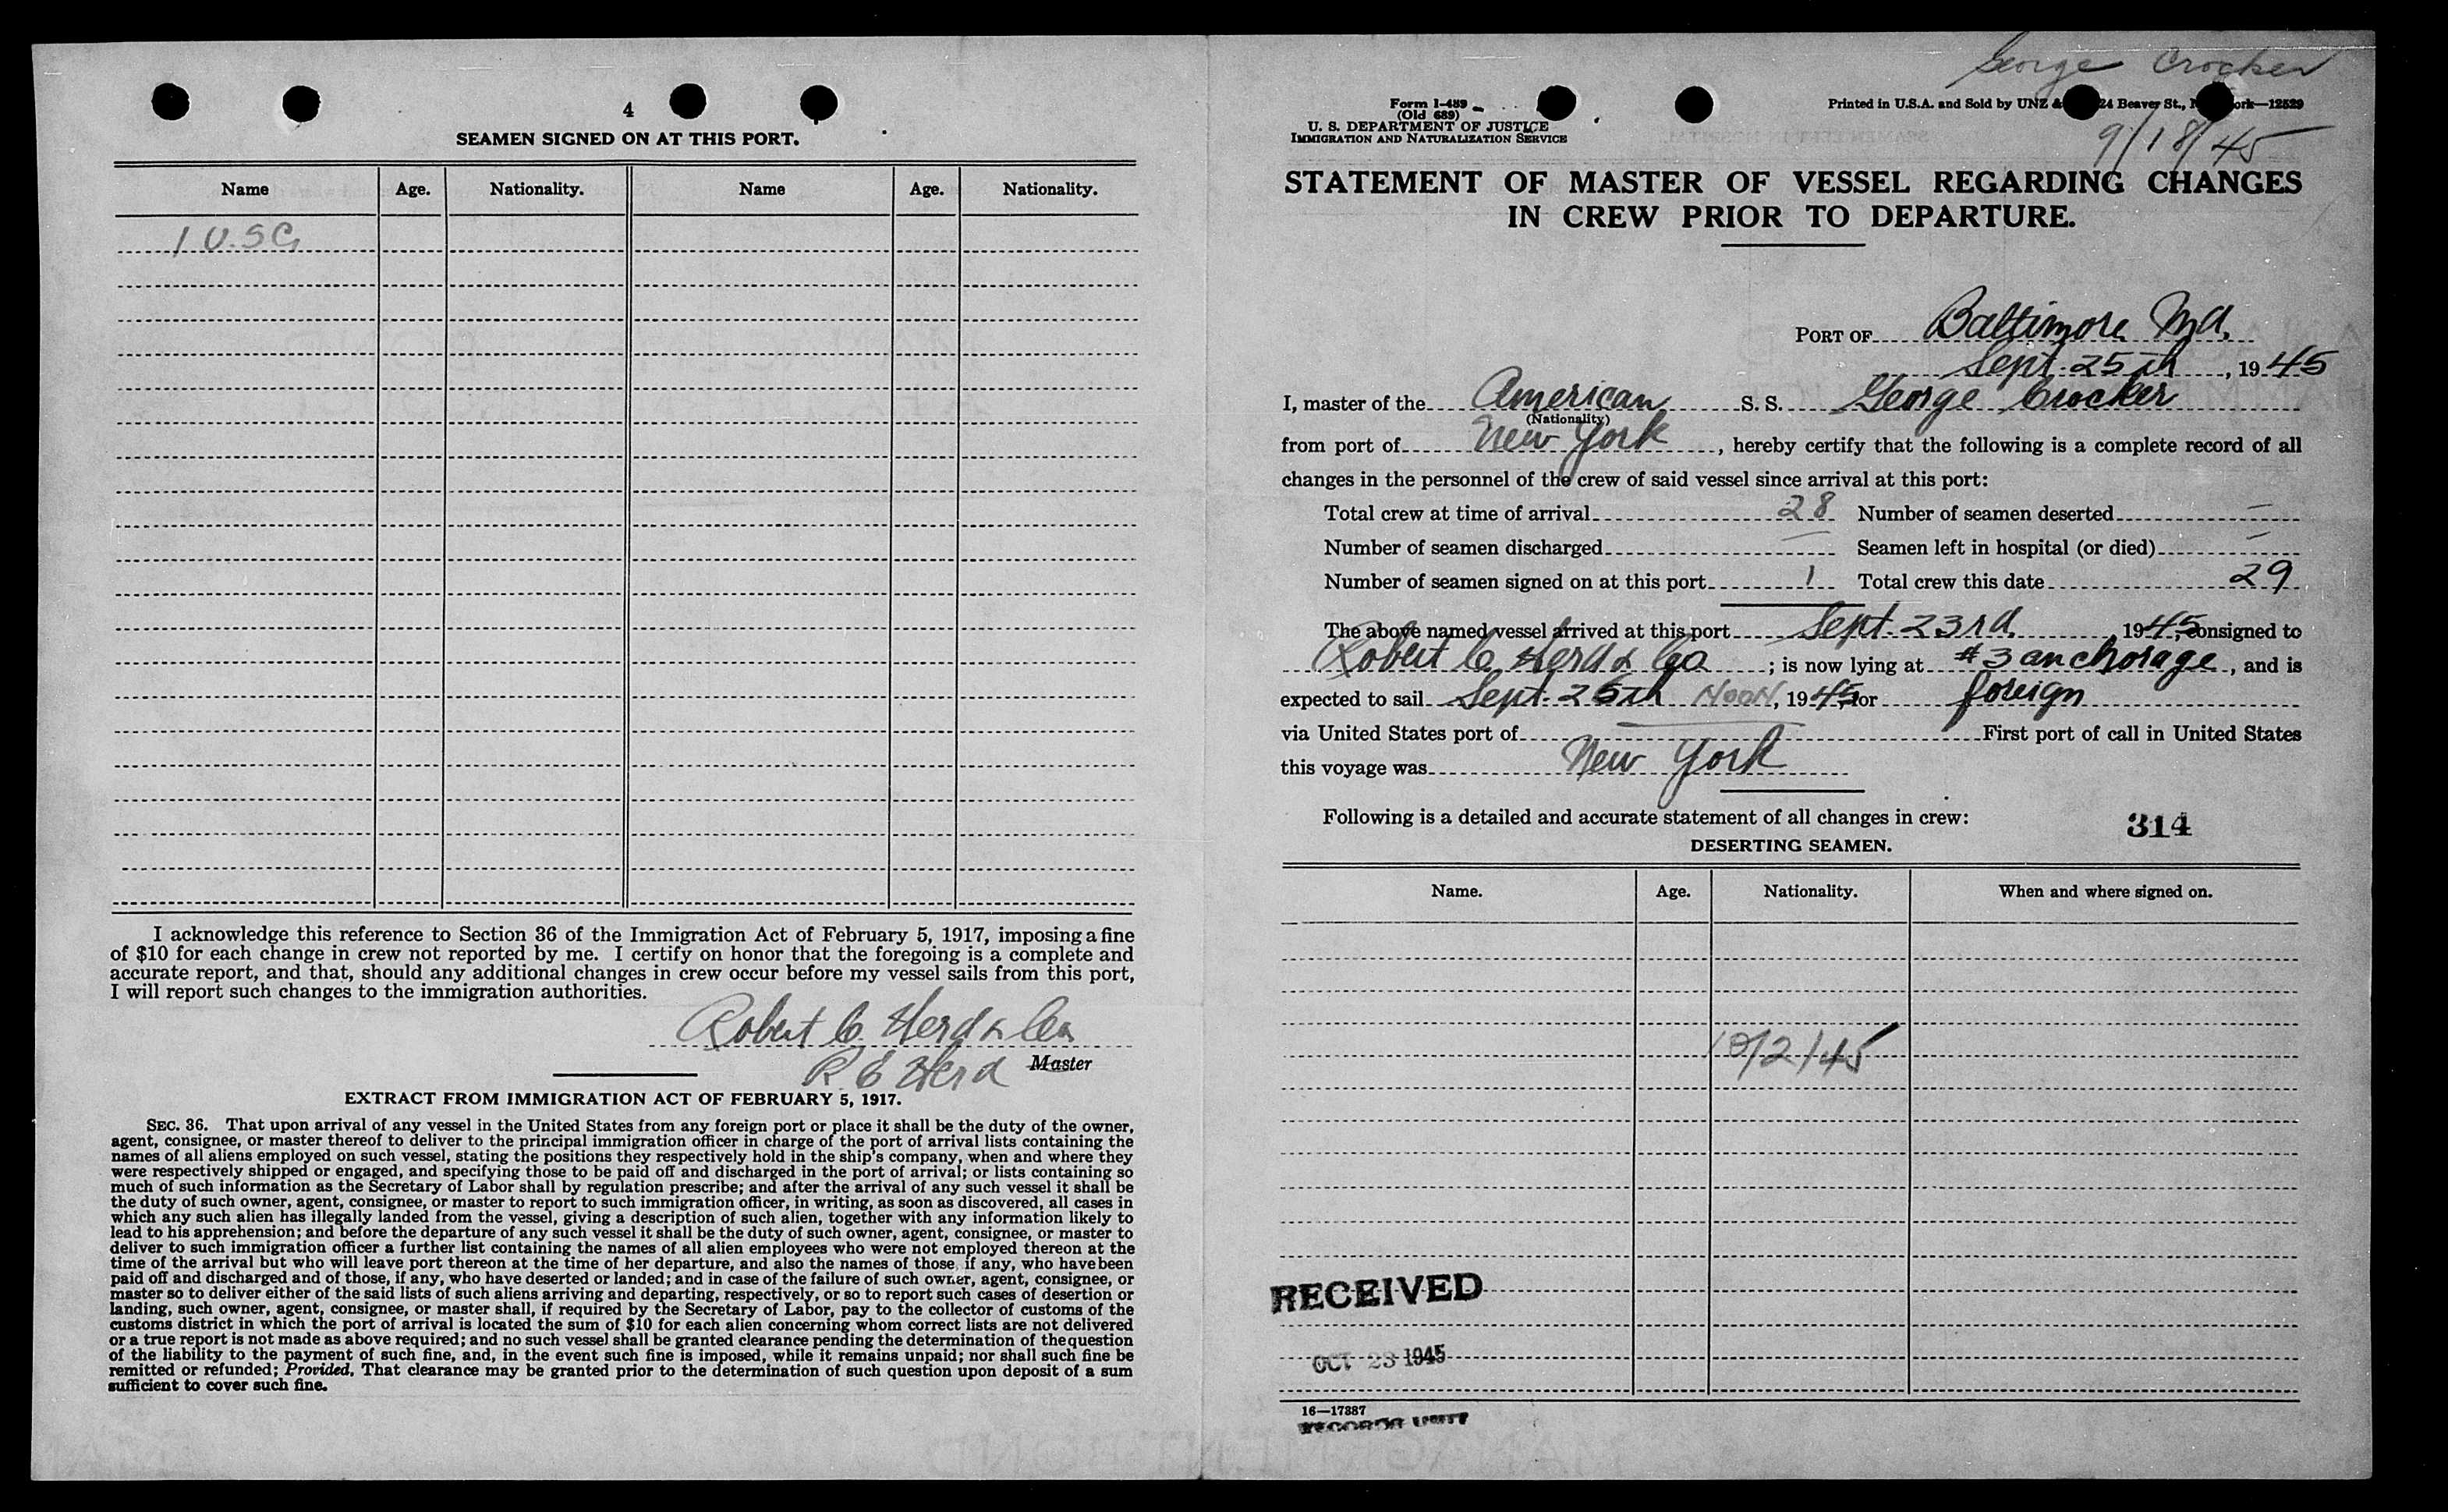 4
SEAMEN SIGNED ON AT THIS PORT.
Name Age. Nationality. Name Age. Nationality.
1 U.S.C.
I acknowledge this reference to Section 36 of the Immigration Act of February 5, 1917, imposing a fine
of $10 for each change in crew not reported by me. I certify on honor that the foregoing is a complete and
accurate report, and that, should any additional changes in crew occur before my vessel sails from this port,
I will report such changes to the immigration authorities.
Robert C. Herd & Co.
R E Herd Master
EXTRACT FROM IMMIGRATION ACT OF FEBRUARY 5, 1917.
SEC. 36. That upon arrival of any vessel in the United States from any foreign port or place it shall be the duty of the owner,
agent, consignee, or master thereof to deliver to the principal immigration officer in charge of the port of arrival lists containing the
names of all aliens employed on such vessel, stating the positions they respectively hold in the ship's company, when and where they
were respectively shipped or engaged, and specifying those to be paid off and discharged in the port of arrival; or lists containing so
much of such information as the Secretary of Labor shall by regulation prescribe; and after the arrival of any such vessel it shall be
the duty of such owner, agent, consignee, or master to report to such immigration officer, in writing, as soon as discovered, all cases in
which any such alien has illegally landed from the vessel, giving a description of such alien, together with any information likely to
lead to his apprehension; and before the departure of any such vessel it shall be the duty of such owner, agent, consignee, or master to
deliver to such immigration officer a further list containing the names of all alien employees who were not employed thereon at the
time of the arrival but who will leave port thereon at the time of her departure, and also the names of those, if any, who have been
paid off and discharged and of those, if any, who have deserted or landed; and in case of the failure of such owner, agent, consignee, or
master so to deliver either of the said lists of such aliens arriving and departing, respectively, or so to report such cases of desertion or
landing, such owner, agent, consignee, or master shall, if required by the Secretary of Labor, pay to the collector of customs of the
customs district in which the port of arrival is located the sum of $10 for each alien concerning whom correct lists are not delivered
or a true report is not made as above required; and no such vessel shall be granted clearance pending the determination of the question
of the liability to the payment of such fine, and, in the event such fine is imposed, while it remains unpaid; nor shall such fine be
remitted or refunded; Provided, That clearance may be granted prior to the determination of such question upon deposit of a sum
sufficient to cover such fine.
George Crocker
Form I-489
(Old 689)
U. S. DEPARTMENT OF JUSTICE
IMMIGRATION AND NATURALIZATION SERVICE
Printed in U.S.A. and Sold by UNZ & 24 Beaver St., N ork—12529
9/18/45
STATEMENT OF MASTER OF VESSEL REGARDING CHANGES
IN CREW PRIOR TO DEPARTURE.
PORT OF Baltimore Md.
Sept. 25th, 1945
I, master of the American S. S. George Crocker
(Nationality)
from port of New York, hereby certify that the following is a complete record of all
changes in the personnel of the crew of said vessel since arrival at this port:
Total crew at time of arrival 28 Number of seamen deserted —
Number of seamen discharged — Seamen left in hospital (or died) —
Number of seamen signed on at this port 1 Total crew this date 29
The above named vessel arrived at this port Sept. 23rd, 1945, consigned to
Robert C. Herd & Co; is now lying at #3 anchorage, and is
expected to sail Sept. 26th NOON, 1945, for foreign
via United States port of — First port of call in United States
this voyage was New York
Following is a detailed and accurate statement of all changes in crew:
314
DESERTING SEAMEN.
Name. Age. Nationality. When and where signed on.
10/2/45
RECEIVED
OCT 23 1945
16—17387
RECORDS UNIT